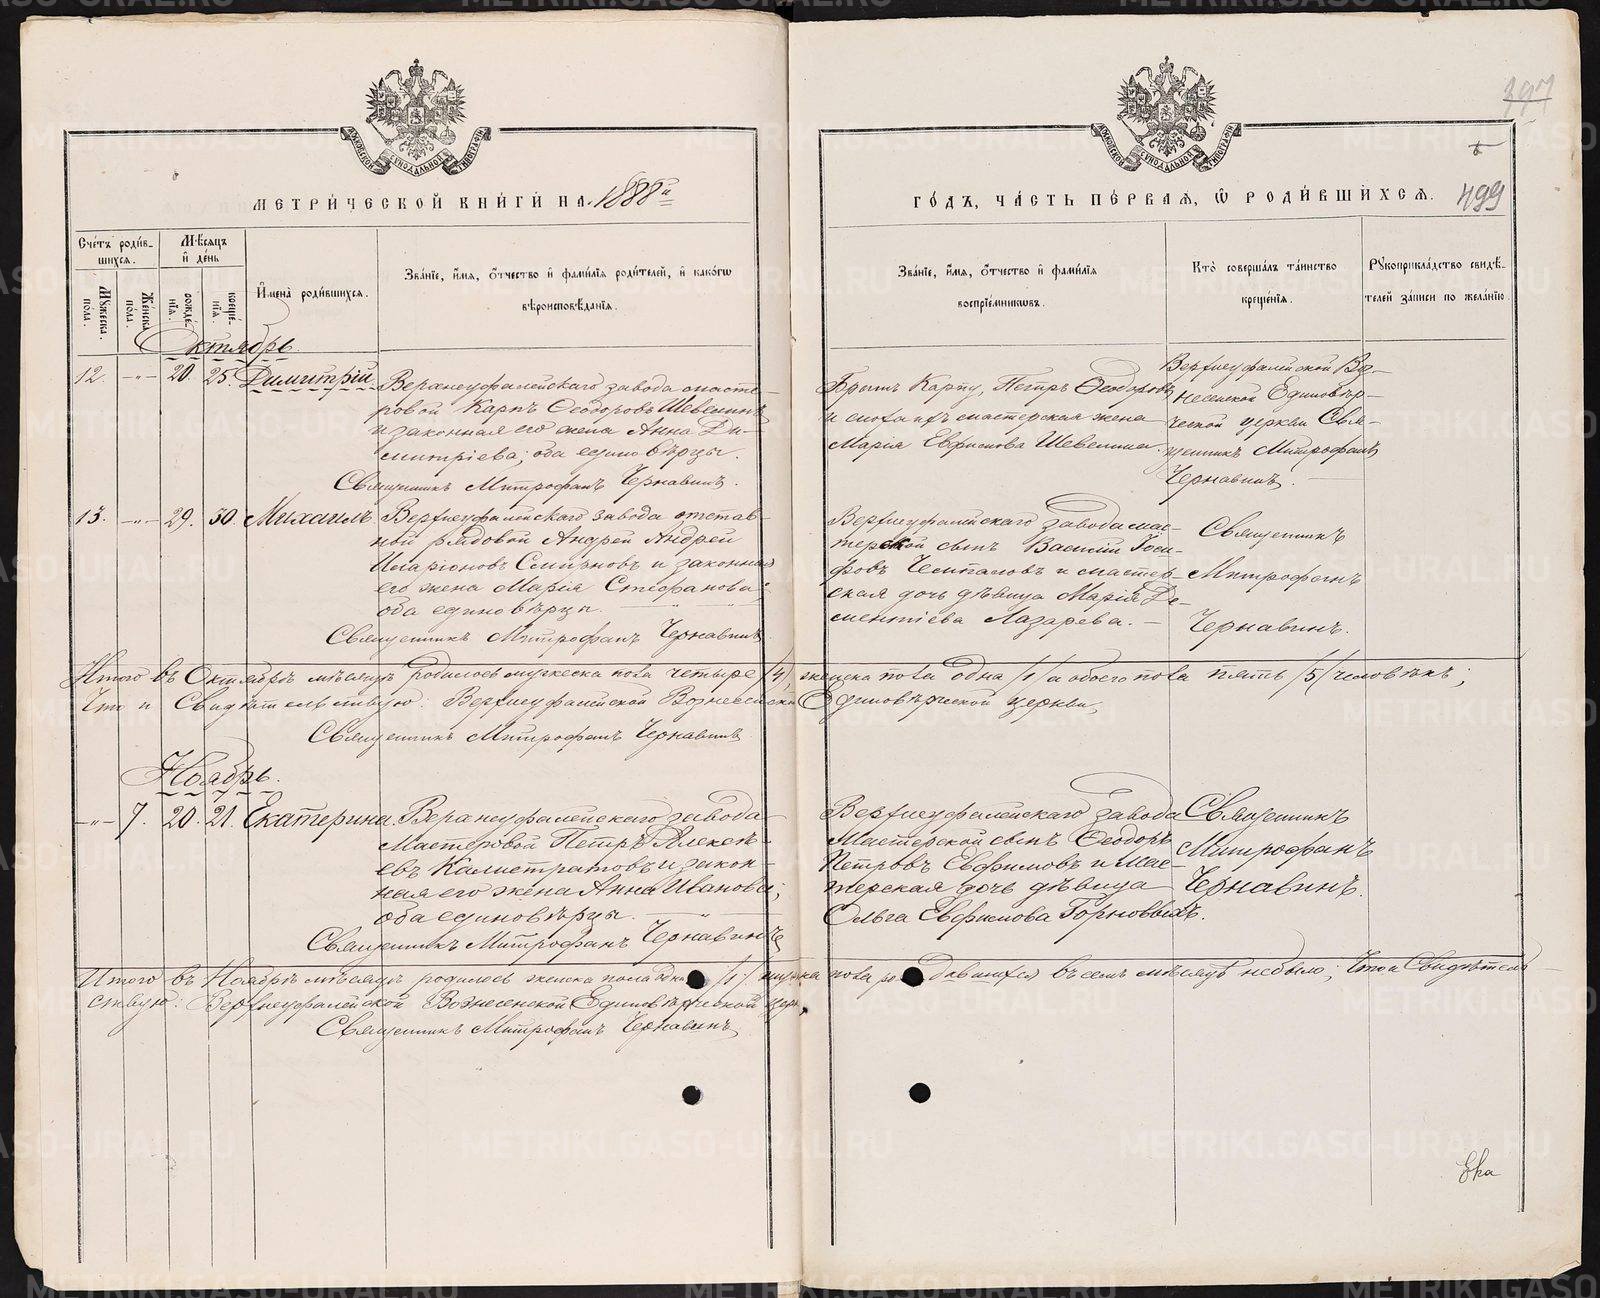 МЕТРИ́ЧЕСКОЙ КНИ́ГИ НА 1888й
ГО́ДЪ, ЧА́СТЬ ПЕ́РВАѦ, Ѡ РОДИ́ВШИХСѦ.
397
499
Сче́тъ роди́в-
шихсѧ.
Мѣ́сѧцъ
и́ де́нь
И҆мена̀ роди́вшихсѧ.
Зва́нїе, и҆́мѧ, ѻ҆́тчество и҆ фами́лїѧ роди́телей, и҆ како́гѡ
вѣроисповѣ́данїѧ.
Мꙋ́жеска
по́ла.
Же́нска
по́ла.
рожде́-
нїѧ.
креще́-
нїѧ.
Зва́нїе, и҆́мѧ, ѻ҆́тчество и҆ фами́лїѧ
воспрїе́мникѡвъ.
Кто̀ соверша́лъ та́инство
креще́нїѧ.
Рꙋкоприкла́дство свидѣ́-
телей за́писи по жела́нїю.
Октябрь
12. —"— 20. 25. Димитрій
Верхнеуфалейскаго завода масте-
ровой Карпъ Ѳеодоровъ Шевелинъ
и законная его жена Анна Ди-
митріева; оба единовѣрцы.
Священникъ Митрофанъ Чернавинъ.
Братъ Карпу, Петръ Ѳеодоровъ
и мастерская жена
Марія Евфимова Шевелина.
Верхнеуфалейской Воз-
несенской Единовѣр-
ческой церкви Свя-
щенникъ Митрофанъ
Чернавинъ.
13. —"— 29. 30. Михаилъ
Верхнеуфалейскаго завода отстав-
ной рядовой Андрей Андрей
Иларіоновъ Смирновъ и законная
его жена Марія Стефанова;
оба единовѣрцы.
Священникъ Митрофанъ Чернавинъ.
Верхнеуфалейскаго завода мас-
терской сынъ Василій Іоси-
фовъ и мастер-
ская дочь дѣвица Марія Де-
ментіева Лазарева. —
Священникъ
Митрофанъ
Чернавинъ.
Итого въ Октябрѣ мѣсяцѣ родилось мужеска пола четыре /4/, женска пола одна /1/ а обоего пола пять /5/ человѣкъ;
Что и Свидѣтельствую: Верхнеуфалейской Вознесенской Единовѣрческой церкви,
Священникъ Митрофанъ Чернавинъ
Ноябрь.
—"— 7. 20. 21. Екатерина.
Верхнеуфалейскаго завода
Мастеровой Петръ Алексѣ-
евъ Калистратовъ и закон-
ная его жена Анна Иванова;
оба единовѣрцы.
Священникъ Митрофанъ Чернавинъ
Верхнеуфалейскаго завода
Мастерской сынъ Ѳеодоръ
Петровъ Евфимовъ и Мас-
терская дочь дѣвица
Ольга Евфимова Горновыхъ.
Священникъ
Митрофанъ
Чернавинъ.
Итого въ Ноябрѣ мѣсяцѣ родилось женска пола одна /1/ мужеска пола родившихся въ семъ мѣсяцѣ небыло; Что и Свидѣтель-
ствую: Верхнеуфалейской Вознесенской Единовѣрческой церкви,
Священникъ Митрофанъ Чернавинъ
METRIKI.GASO-URAL.RU